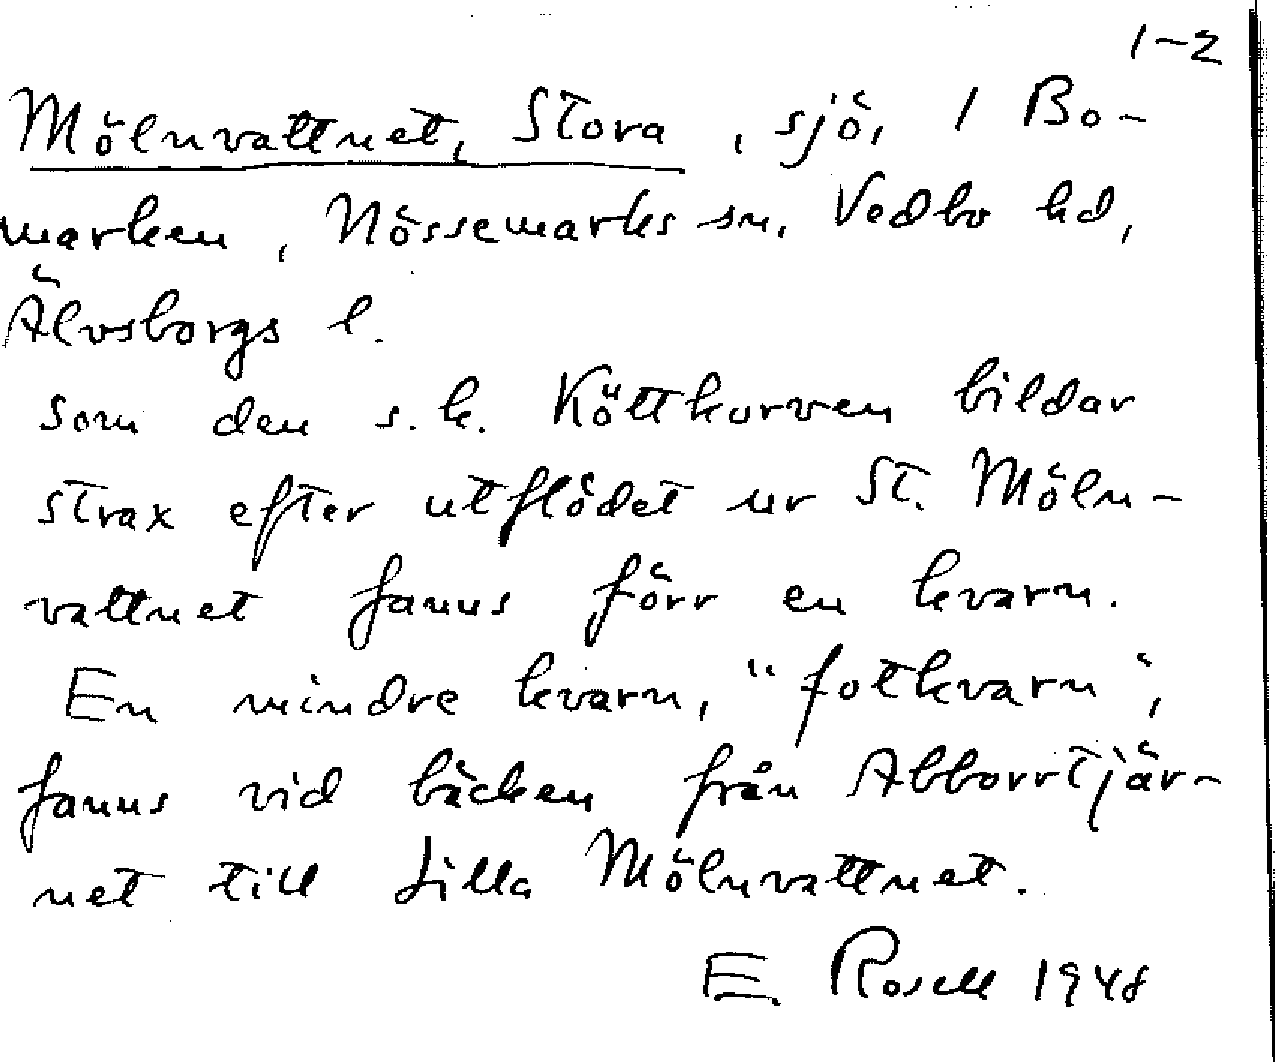 1-2
Mölnvattnet, Stora, sjö, 1 Bo-
marken, Nössemarks sn, Vedbo hd,
Älvsborgs l.
som den s.k. Köttkorven bildar
strax efter utflödet ur St. Möln-
vattnet fanns förr en kvarn.
En mindre kvarn, "fotkvarn",
fanns vid bäcken från Abborrtjär-
net till Lilla Mölnvattnet.
E. Rosell 1948